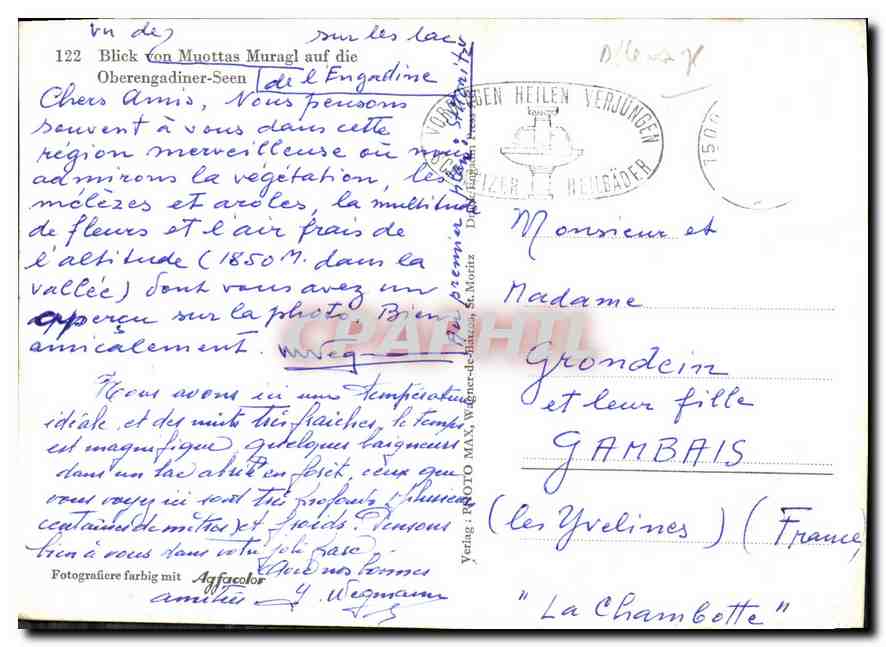 vu de sur les lacs
122 Blick von Muottas Muragl auf die
Oberengadiner-Seen
de l'Engadine
Chers Amis, Nous pensons
souvent à vous dans cette
région merveilleuse où nous
admirons la végétation, les
mélèzes et aroles, la multitude
de fleurs et l'air frais de
l'altitude (1850 M. dans la
vallée) dont vous avez un
apperçu sur la photo. Bien
amicalement.
Nous avons ici une température
idéale, et des nuits très fraîches, le temps
est magnifique, quelques baigneurs
dans un lac abrité en forêt, ceux que
vous voyez ici sont très profonds (plusieurs
centaines de mètres) et froids. Pensons
bien à vous dans votre joli
Avec nos bonnes
amitiés Y. Wegmann
Fotografiere farbig mit Agfacolor
Au premier plan: St Moritz
Verlag: PHOTO MAX, Wagner-de-Barros, St. Moritz
Druck: Engadin Press
VORBEUGEN HEILEN VERJÜNGEN
SCHWEIZER HEILBÄDER
1500
Monsieur et
Madame
Grondein
et leur fille
GAMBAIS
(les Yvelines) (France)
"La Chambotte"
CPAPHIL